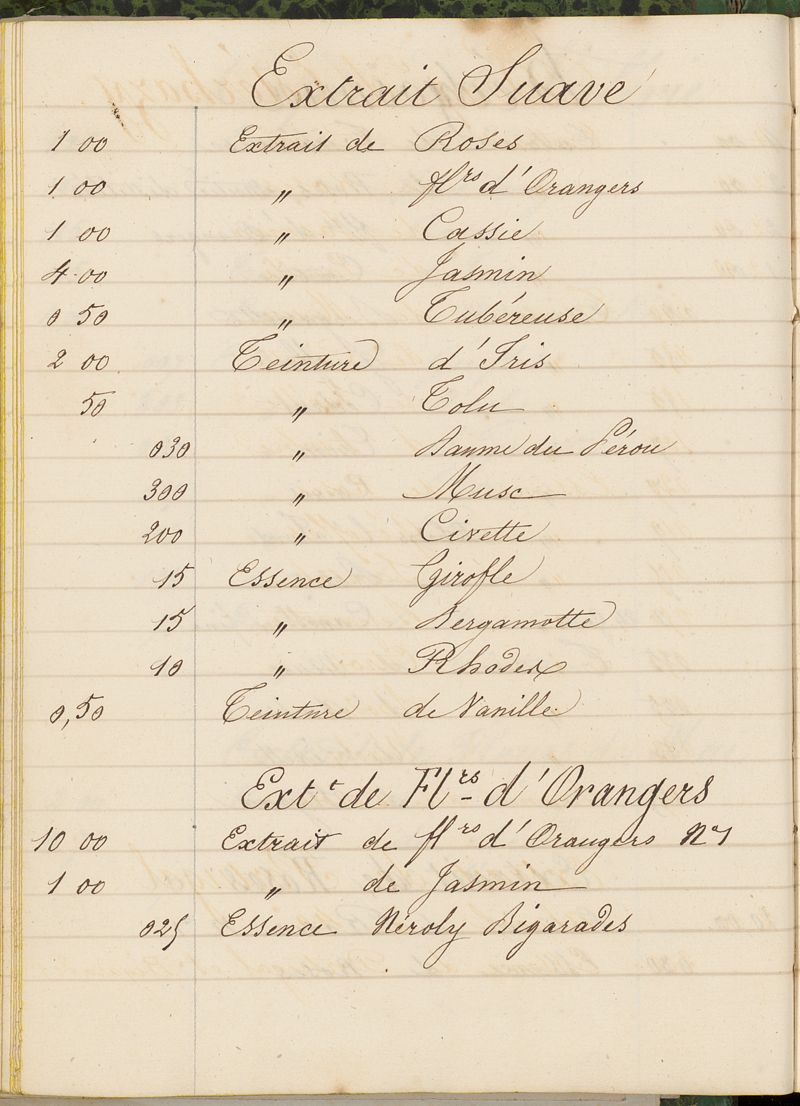 Extrait Suave
1 00 Extrait de Roses
1 00 〃 flrs d'Orangers
1 00 〃 Cassie
4 00 〃 Jasmin
0 50 〃 Tubéreuse
2 00 Teinture d'Iris
50 〃 Tolu
030 〃 Baume du Pérou
300 〃 Musc
200 〃 Civette
15 Essence Girofle
15 〃 Bergamotte
10 〃 Rhodes
0,50 Teinture de Vanille
Extt de Flrs d'Orangers
10 00 Extrait de flrs d'Orangers No 1
1 00 〃 de Jasmin
025 Essence Néroly Bigarades